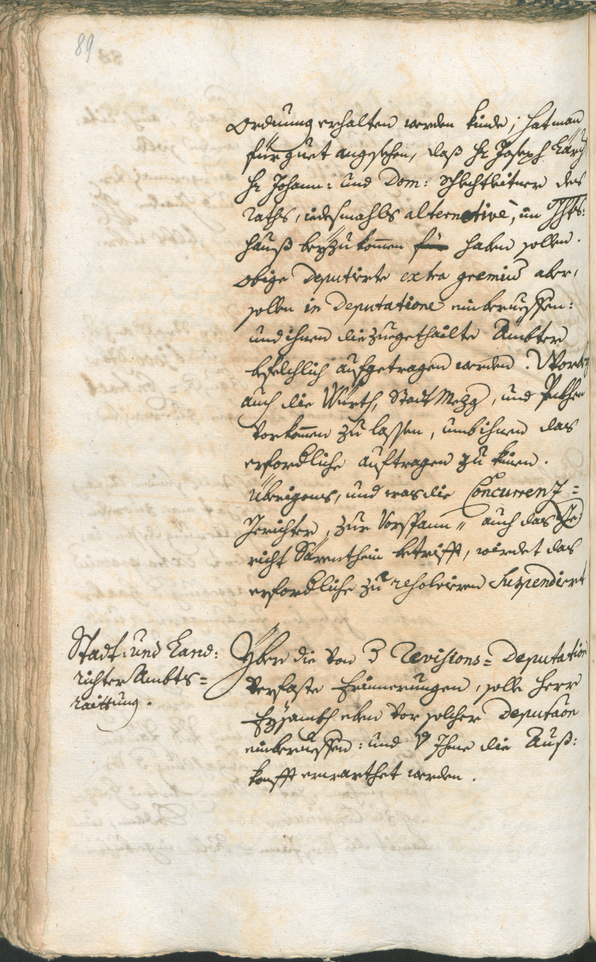 89
Ordnung erhalten werden kinde, hat man
für guet angesehen, daß Hr Joseph
Hr Johann: und Dom: Schlechtleitner des
Raths, iedesmahls alternative, im
hauß beyzukommen haben sollen.
obige Deputierte extra gremium aber,
sollen in Deputatione einberueffen:
und ihnen die zuegethailte Ämbter
befelchlich aufgetragen werden.
auch die Würth, Stadt Mezg, und Pekhen
vorkommen zu lassen, umb ihnen das
erfordliche auftragen zu kinen.
Übrigens, und was die Concurrenz=
Gerichter, zur Vorspann, auch das Ge
richt Sarenthein betrifft, wirdet das
erfordliche zu resolvieren suspendiert
Stadt: und Land:
richter Ambts=
raittung.
Yber die von 3 Revisions= Deputation
verfaste Erinnerungen, solle Herr
eben vor solcher Deputaon
einberueffen: und Ihme die Auß:
konfft erwarthet werden.